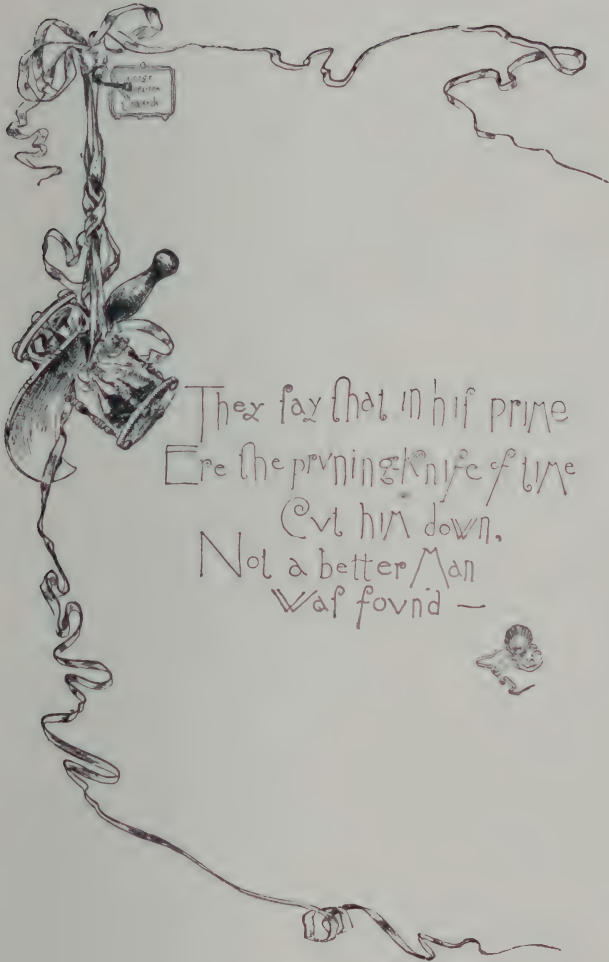 They ſay that in hiſ prime
Ere the prvning-knife of time
Cvt him down,
Not a better Man
Waſ fovnd —